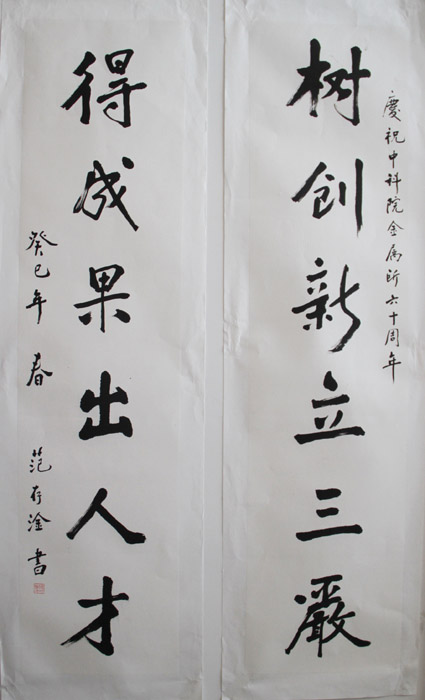 慶祝中科院金属所六十周年
树创新立三嚴
得成果出人才
癸巳年春 范存淦書